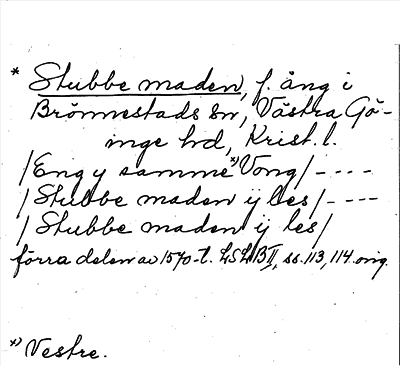 * Stubbe maden, f. äng i
Brönnestads sn, Västra Gö-
inge hd, Krist. l.
/Eng y samme *) Vong/ - - - -
/Stubbe maden ij les/ - - - -
/Stubbe maden ij les/
förra delen av 1570-t. LSLB II, ss. 113, 114. orig.
*) Vestre.